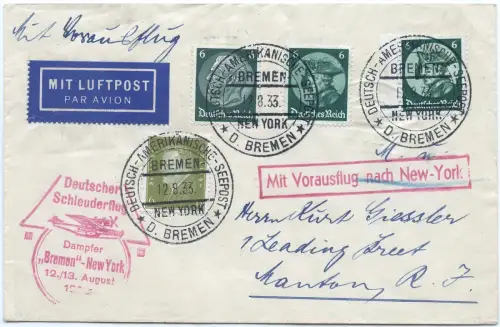 Mit Vorausflug
MIT LUFTPOST
PAR AVION
6
6
6
Deutsches Reich
Deutsches Reich
DEUTSCH-AMERIKANISCHE-SEEPOST
BREMEN-
8.33.
NEW YORK
* D. BREMEN *
DEUTSCH-AMERIKANISCHE-SEEPOST
BREMEN
NEW YORK
* D. BREMEN *
DEUTSCH-AMERIKANISCHE-SEEPOST
BREMEN-
12.8.33
NEW YORK
* D. BREMEN *
Mit Vorausflug nach New-York
Deutscher
Schleuderflug
Dampfer
„Bremen"-New York
12./13. August
Herrn Kurt Giessler
1 Leading Street
Manton, R. I.